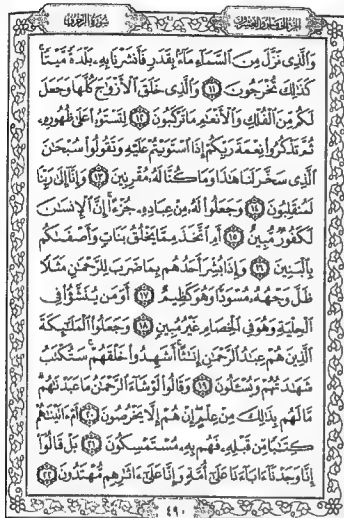 سورة الزخرف
الجزء الخامس والعشرون
وَالَّذِي نَزَّلَ مِنَ السَّمَاءِ مَاءً بِقَدَرٍ فَأَنشَرْنَا بِهِ بَلْدَةً مَّيْتًا
كَذَٰلِكَ تُخْرَجُونَ ١١ وَالَّذِي خَلَقَ الْأَزْوَاجَ كُلَّهَا وَجَعَلَ
لَكُم مِّنَ الْفُلْكِ وَالْأَنْعَامِ مَا تَرْكَبُونَ ١٢ لِتَسْتَوُوا عَلَىٰ ظُهُورِهِ
ثُمَّ تَذْكُرُوا نِعْمَةَ رَبِّكُمْ إِذَا اسْتَوَيْتُمْ عَلَيْهِ وَتَقُولُوا سُبْحَانَ
الَّذِي سَخَّرَ لَنَا هَٰذَا وَمَا كُنَّا لَهُ مُقْرِنِينَ ١٣ وَإِنَّا إِلَىٰ رَبِّنَا
لَمُنقَلِبُونَ ١٤ وَجَعَلُوا لَهُ مِنْ عِبَادِهِ جُزْءًا إِنَّ الْإِنسَانَ
لَكَفُورٌ مُّبِينٌ ١٥ أَمِ اتَّخَذَ مِمَّا يَخْلُقُ بَنَاتٍ وَأَصْفَاكُم
بِالْبَنِينَ ١٦ وَإِذَا بُشِّرَ أَحَدُهُم بِمَا ضَرَبَ لِلرَّحْمَٰنِ مَثَلًا
ظَلَّ وَجْهُهُ مُسْوَدًّا وَهُوَ كَظِيمٌ ١٧ أَوَمَن يُنَشَّأُ فِي
الْحِلْيَةِ وَهُوَ فِي الْخِصَامِ غَيْرُ مُبِينٍ ١٨ وَجَعَلُوا الْمَلَائِكَةَ
الَّذِينَ هُمْ عِبَادُ الرَّحْمَٰنِ إِنَاثًا أَشَهِدُوا خَلْقَهُمْ سَتُكْتَبُ
شَهَادَتُهُمْ وَيُسْأَلُونَ ١٩ وَقَالُوا لَوْ شَاءَ الرَّحْمَٰنُ مَا عَبَدْنَاهُم
مَّا لَهُم بِذَٰلِكَ مِنْ عِلْمٍ إِنْ هُمْ إِلَّا يَخْرُصُونَ ٢٠ أَمْ آتَيْنَاهُمْ
كِتَابًا مِّن قَبْلِهِ فَهُم بِهِ مُسْتَمْسِكُونَ ٢١ بَلْ قَالُوا
إِنَّا وَجَدْنَا آبَاءَنَا عَلَىٰ أُمَّةٍ وَإِنَّا عَلَىٰ آثَارِهِم مُّهْتَدُونَ ٢٢
٤٩٠